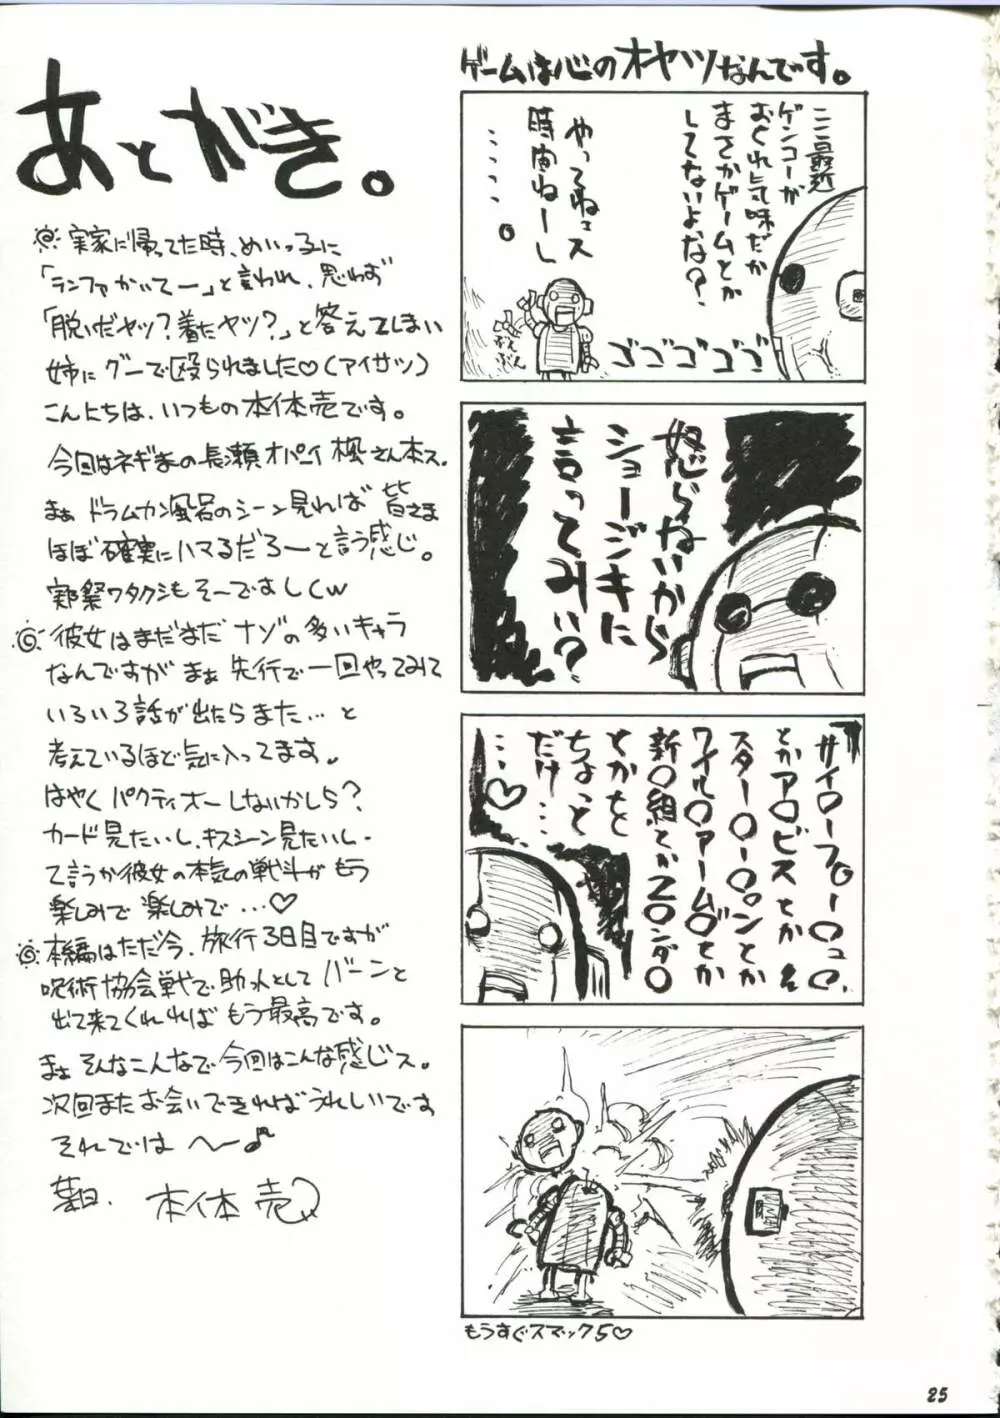 あとがき。
実家に帰ってた時、めいっ子に
「ランファかいてー」と言われ、思わず
「脱いだヤツ?着たヤツ?」と答えてしまい
姉にグーで殴られました♡(アイサツ)
こんにちは、いつもの本体売です。
今回はネギまの長瀬オパーイ楓さん本ス。
まぁドラムカン風呂のシーン見れば皆さま
ほぼ確実にハマるだろーと言う感じ。
実際ワタクシもそーですしw
彼女はまだまだナゾの多いキャラ
なんですがまぁ先行で一回やってみて
いろいろ話が出たらまた…と
考えているほど気に入ってます。
はやくパクティオーしないかしら?
カード見たいし、キスシーン見たいし
て言うか彼女の本気の戦斗がもう
楽しみで楽しみで…♡
本編はただ今、旅行3日目ですが
呪術協会戦で助っ人としてバーンと
出て来てくれればもう最高です。
まぁそんなこんなで今回はこんな感じス。
次回またお会いできればうれしいです
それでは へー♪
本体売
ゲームは心のオヤツなんです。
ここ最近
ゲンコーが
おくれ気味だか
まさかゲームとか
してないよな?
やってねェス
時間ねーし
……。
ぶんぶん
ゴゴゴゴゴ
怒らないから
ショージキに
言ってみい?
サイ○ーフ○ー○ュ○、
とかア○ビスとか
スター○ー○ンとか
ワイル○アーム○とか
新○組とかZ○ンダ○
とかを
ちょっと
だけ……
…♡
もうすぐスマック5♡
25